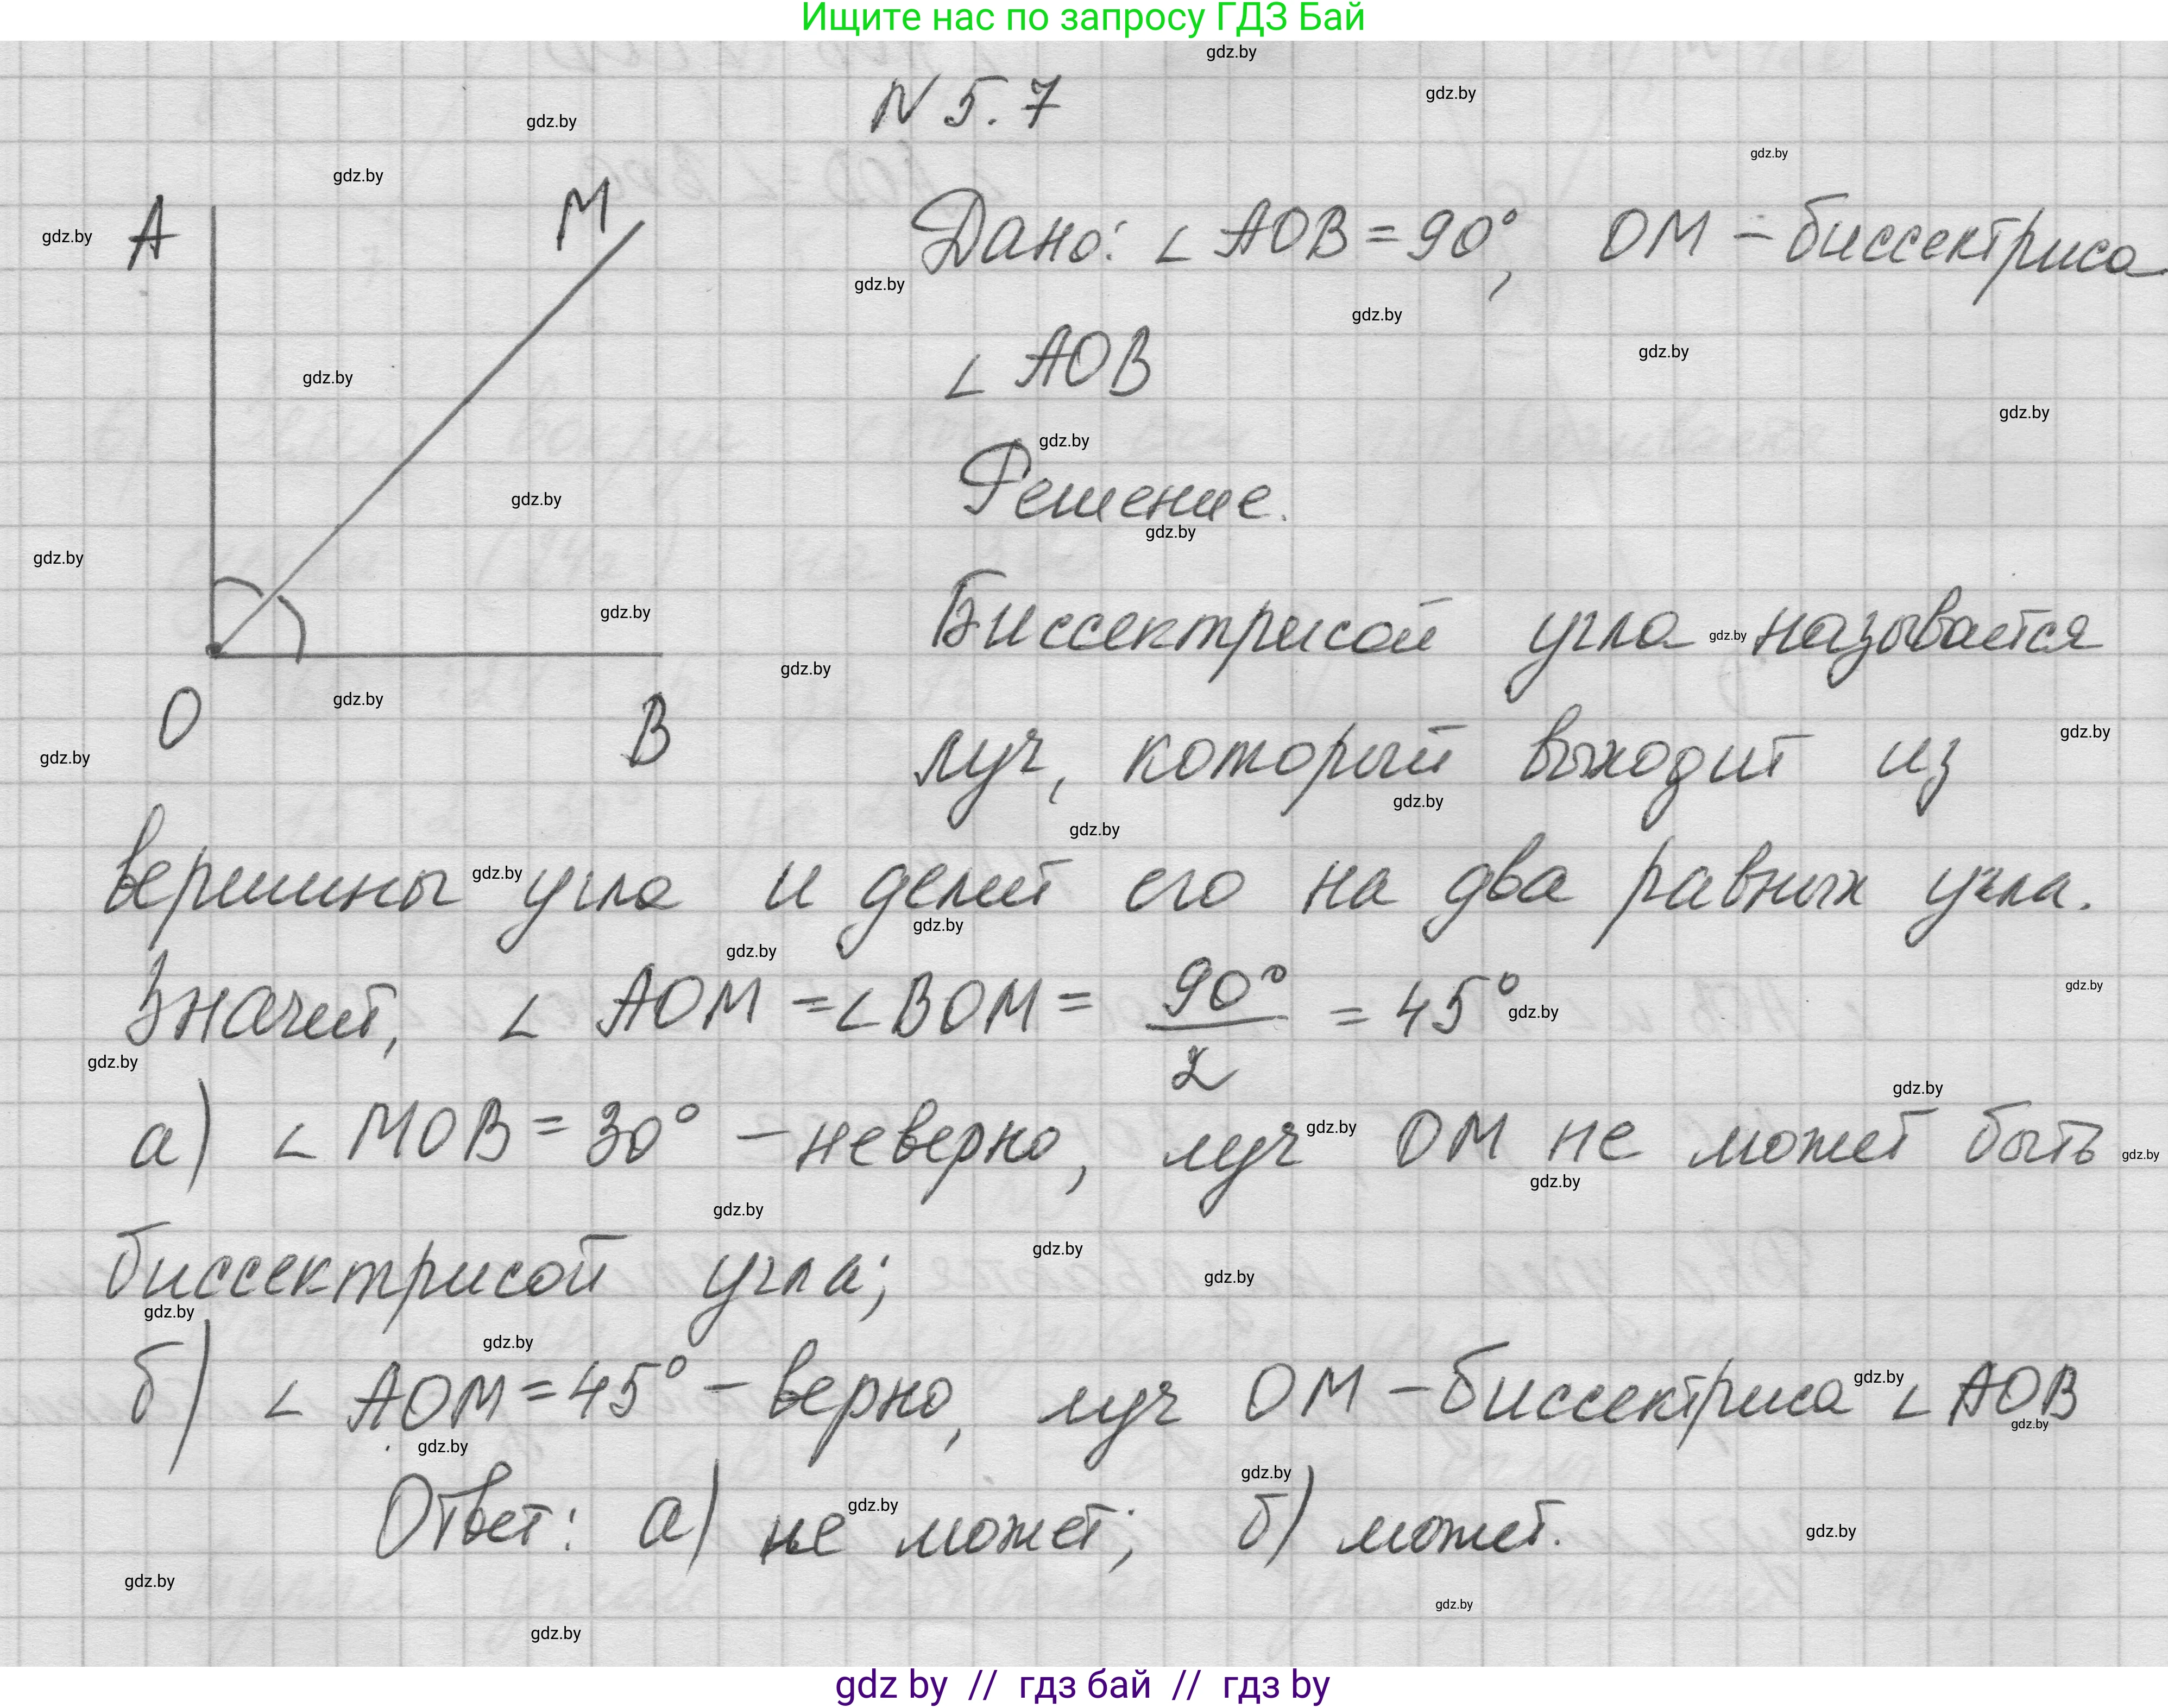 Ищите нас по запросу ГДЗ Бай
N 5.7
A
M
O
B
Дано: ∠ AOB = 90°, OM – биссектриса
∠ AOB
Решение.
Биссектрисой угла называется
луч, который выходит из
вершины угла и делит его на два равных угла.
Значит, ∠ AOM = ∠ BOM = 90°/2 = 45°
а) ∠ MOB = 30° – неверно, луч OM не может быть
биссектрисой угла;
б) ∠ AOM = 45° – верно, луч OM – биссектриса ∠ AOB
Ответ: а) не может; б) может.
gdz by // гдз бай // гдз by
gdz.by